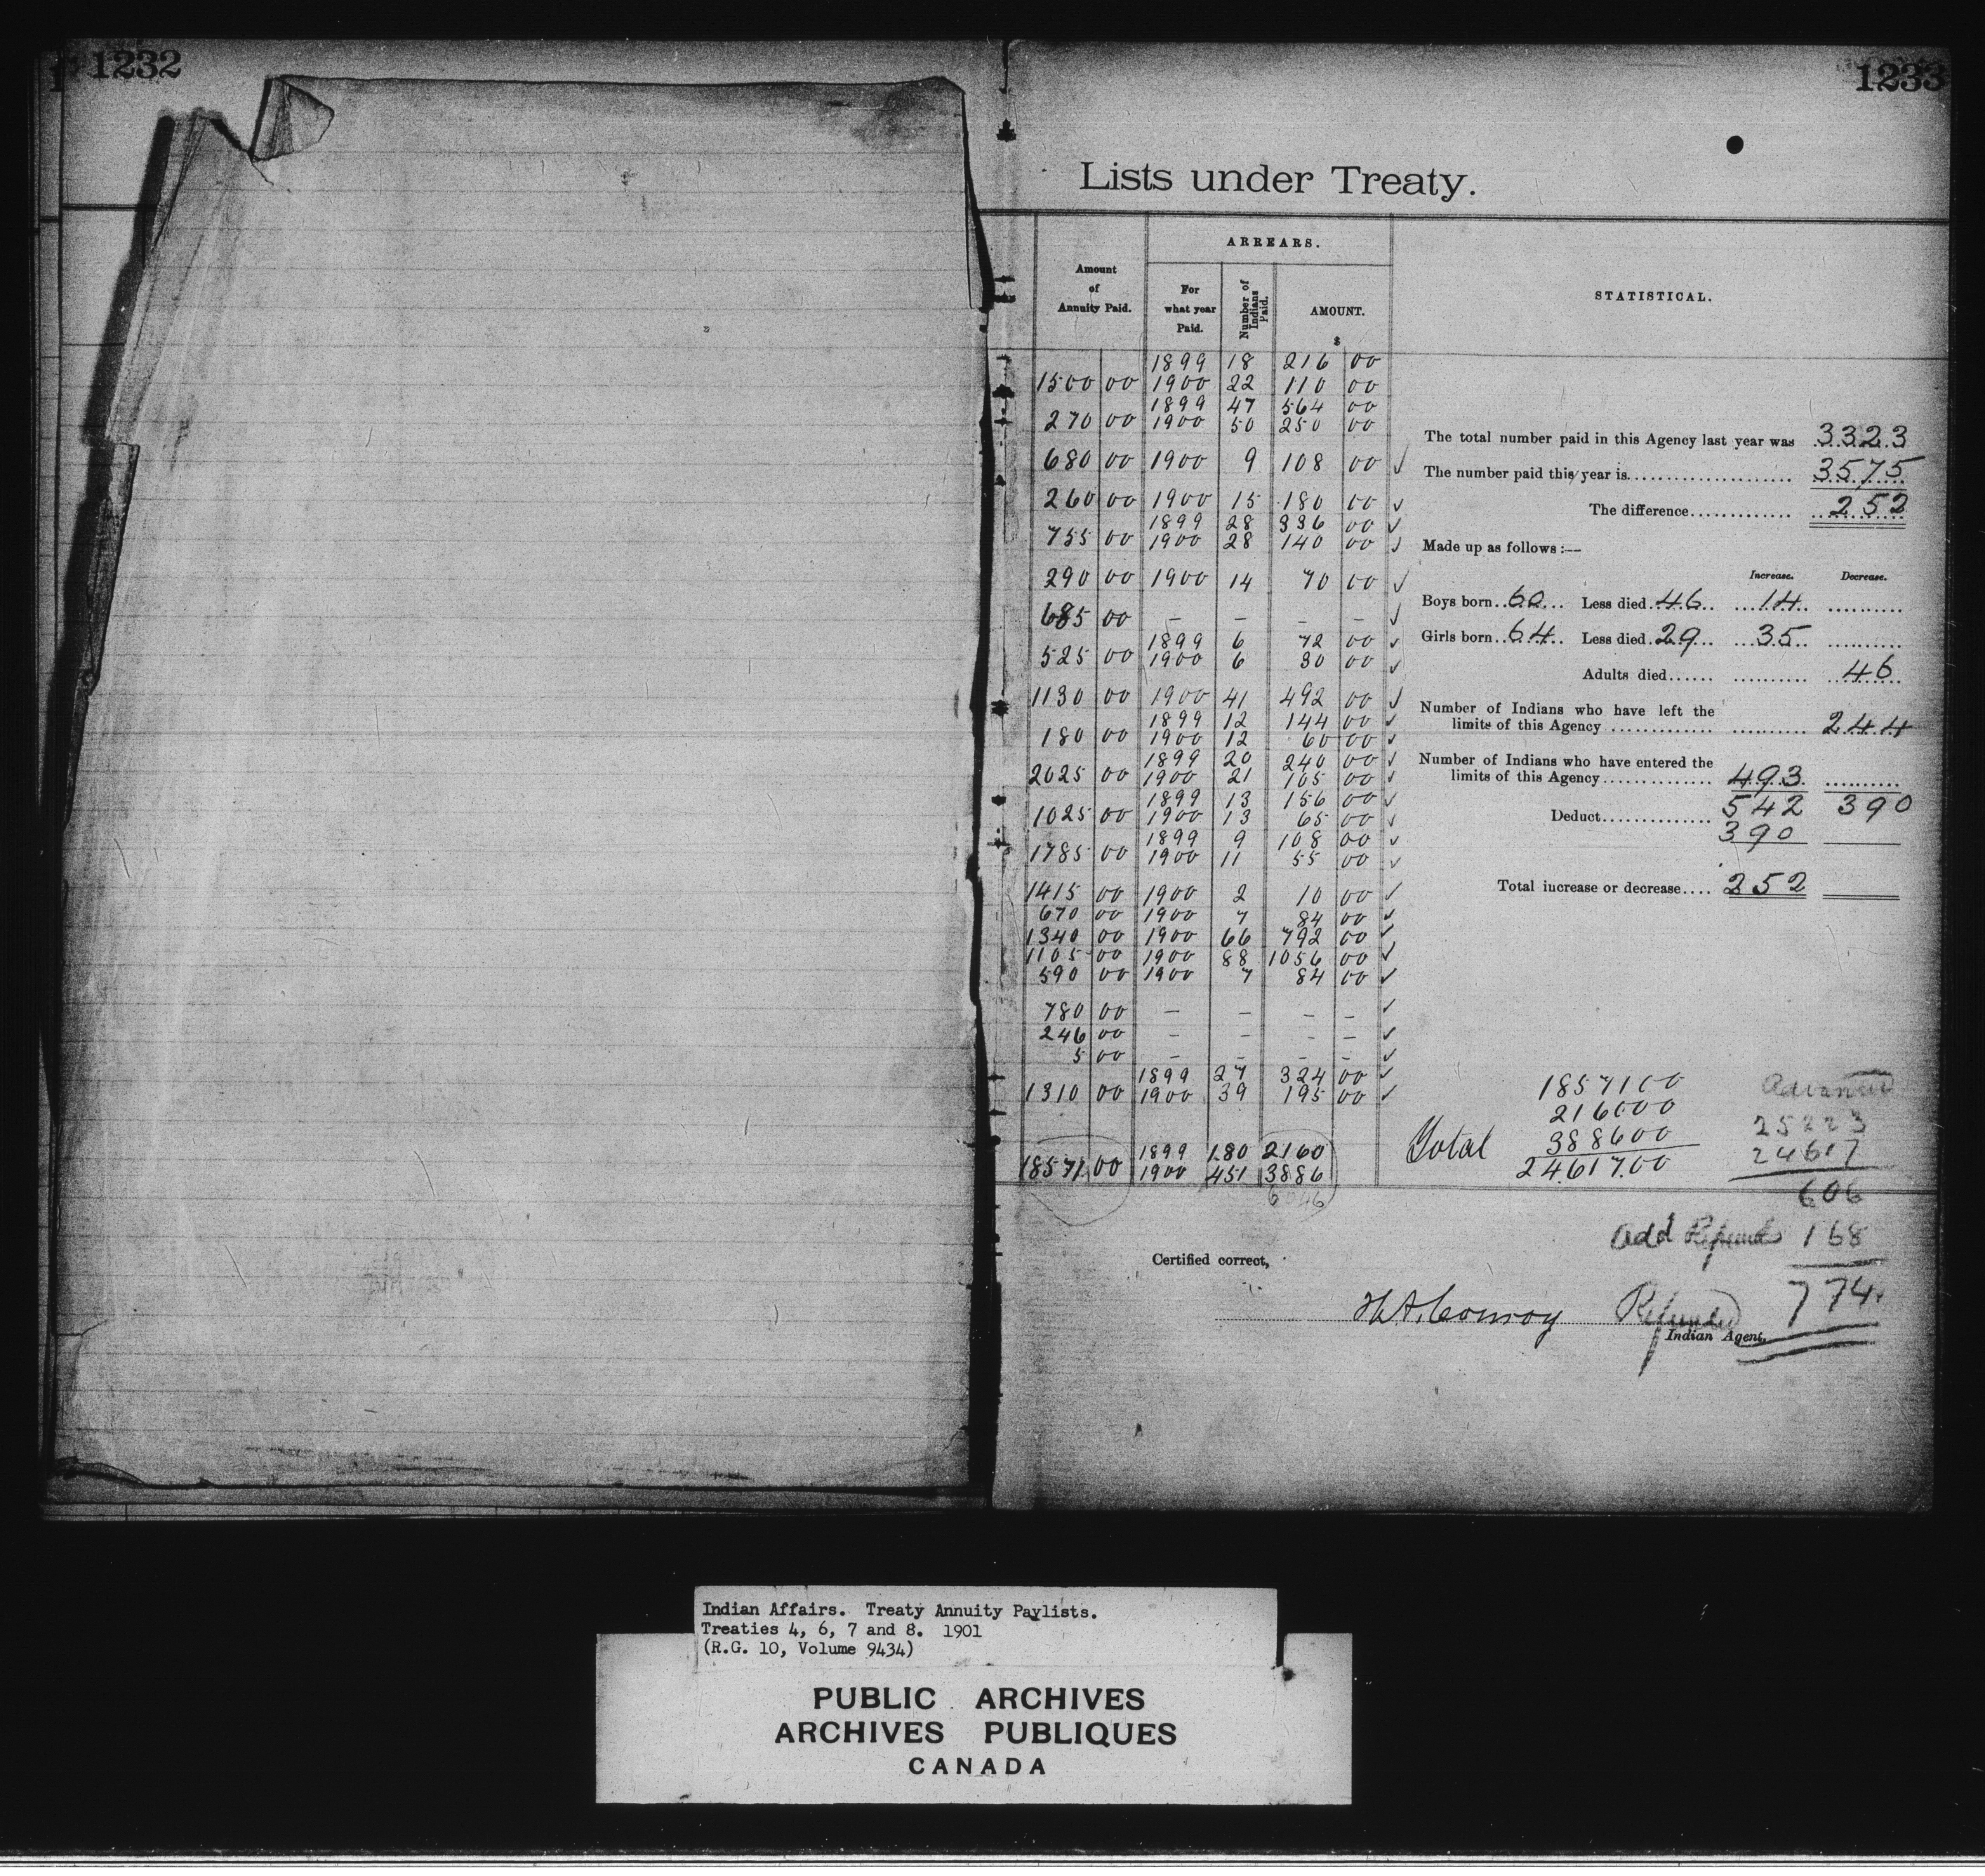 1232
1233
Lists under Treaty.
Amount of Annuity Paid.
ARREARS.
For what year Paid.
Number of Indians Paid.
AMOUNT.
$
STATISTICAL.
1899 18 216 00
1500 00 1900 22 110 00
1899 47 564 00
270 00 1900 50 250 00
680 00 1900 9 108 00 ✓
260 00 1900 15 180 00 ✓
1899 28 336 00 ✓
755 00 1900 28 140 00 ✓
290 00 1900 14 70 00 ✓
685 00 – – – – ✓
1899 6 72 00 ✓
525 00 1900 6 30 00 ✓
1130 00 1900 41 492 00 ✓
1899 12 144 00 ✓
180 00 1900 12 60 00 ✓
1899 20 240 00 ✓
2025 00 1900 21 105 00 ✓
1899 13 156 00 ✓
1025 00 1900 13 65 00 ✓
1899 9 108 00 ✓
1785 00 1900 11 55 00 ✓
1415 00 1900 2 10 00 ✓
670 00 1900 7 84 00 ✓
1340 00 1900 66 792 00 ✓
1105 00 1900 88 1056 00 ✓
590 00 1900 7 84 00 ✓
780 00 – – – – ✓
246 00 – – – – ✓
5 00 – – – – ✓
1899 27 324 00 ✓
1310 00 1900 39 195 00 ✓
1899 180 2160
18571 00 1900 451 3886
6046
The total number paid in this Agency last year was 3323
The number paid this year is 3575
The difference 252
Made up as follows:—
Increase. Decrease.
Boys born 60 Less died 46 14
Girls born 64 Less died 29 35
Adults died 46
Number of Indians who have left the
limits of this Agency 244
Number of Indians who have entered the
limits of this Agency 493
542 390
Deduct
390
Total increase or decrease 252
1857100
216000
388600
Total 2461700
Advanced
25223
24617
606
Add Refunds 168
Refunded 774.
Certified correct,
H.A. Conroy
Indian Agent.
Indian Affairs. Treaty Annuity Paylists.
Treaties 4, 6, 7 and 8. 1901
(R.G. 10, Volume 9434)
PUBLIC ARCHIVES
ARCHIVES PUBLIQUES
CANADA